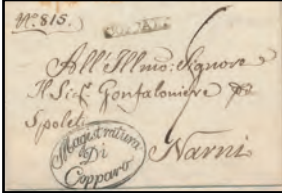 N.º 815.
COPPARO
All'Illmo: Signore
Il Sig.r Gonfaloniere
Spoleti
Narni
Magistratura
Di
Copparo